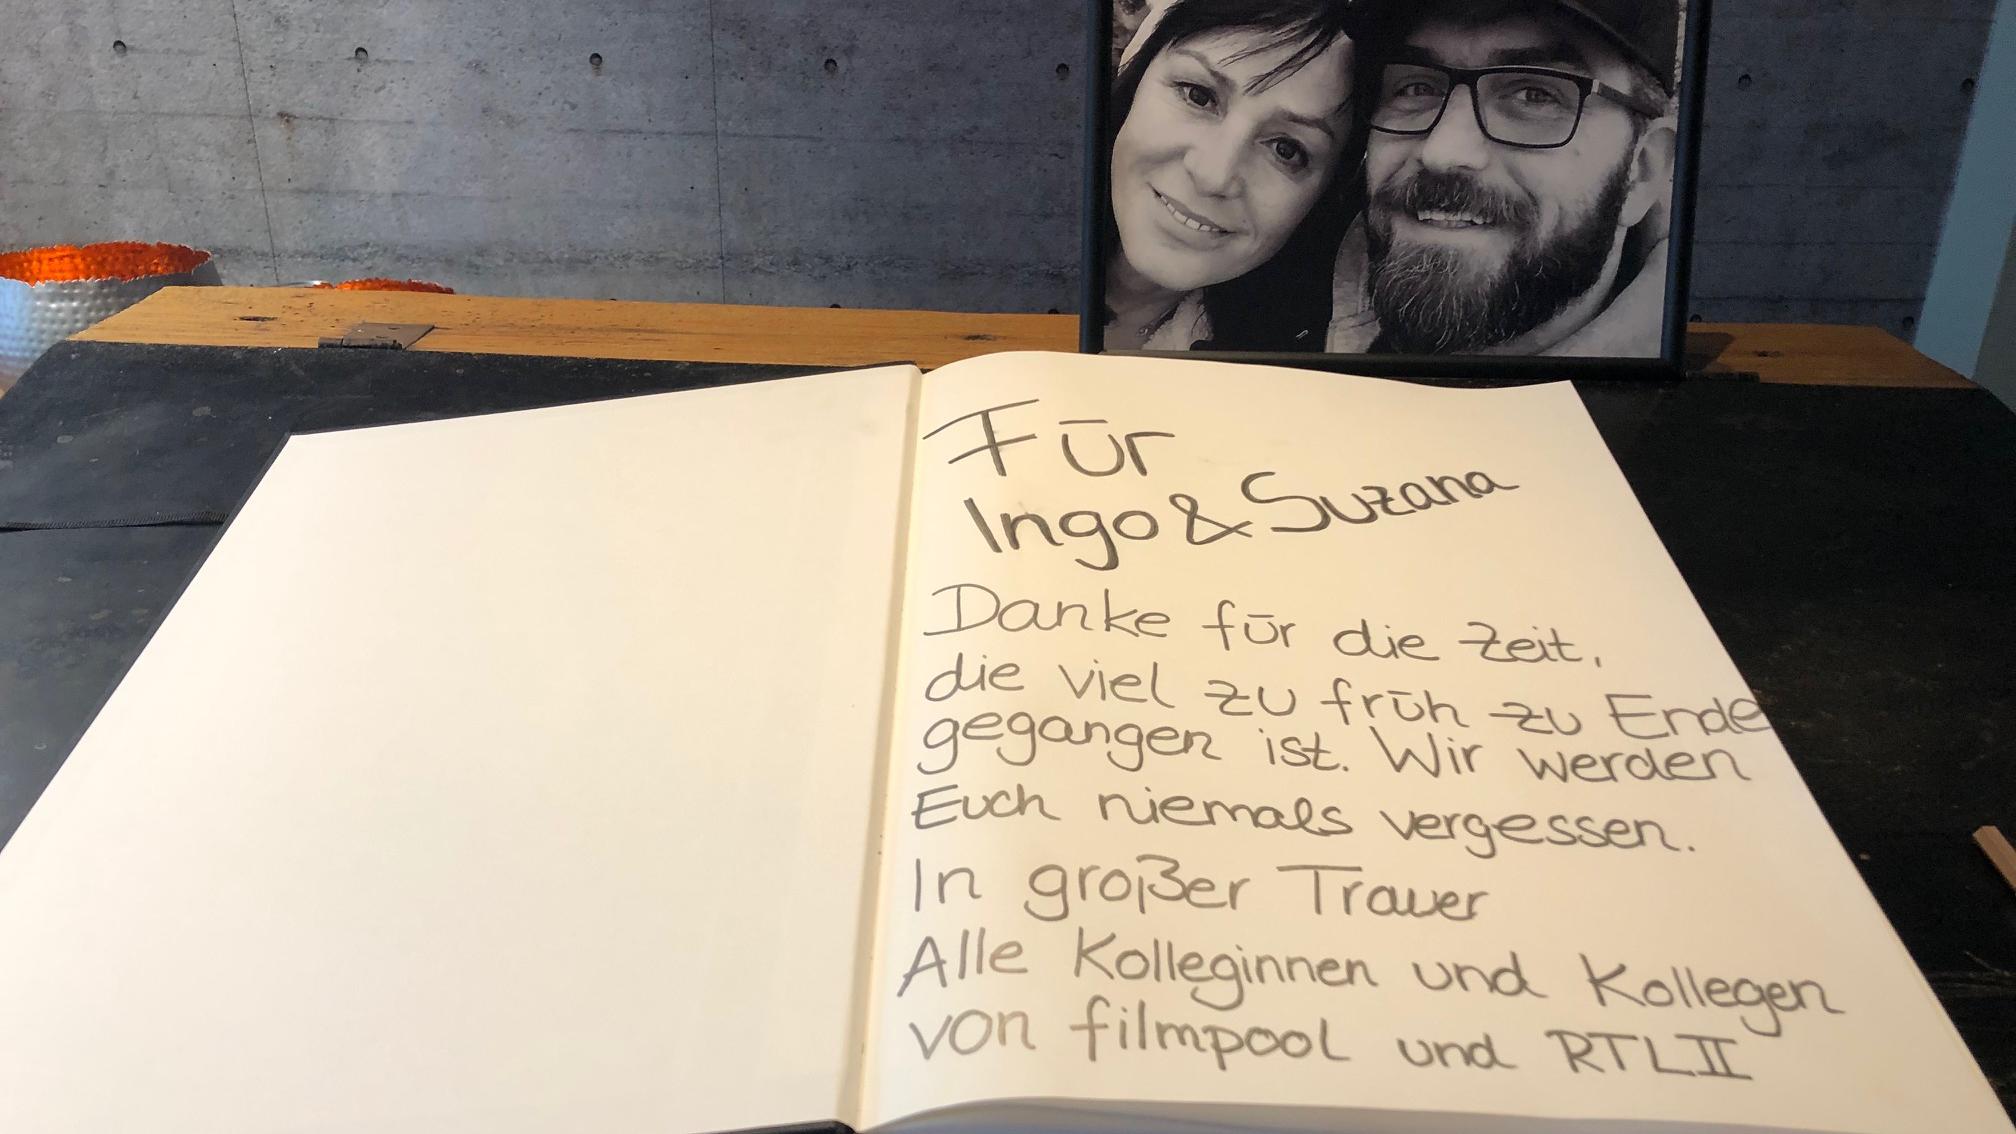 Für
Ingo & Suzana
Danke für die Zeit,
die viel zu früh zu Ende
gegangen ist. Wir werden
Euch niemals vergessen.
In großer Trauer
Alle Kolleginnen und Kollegen
von filmpool und RTLII